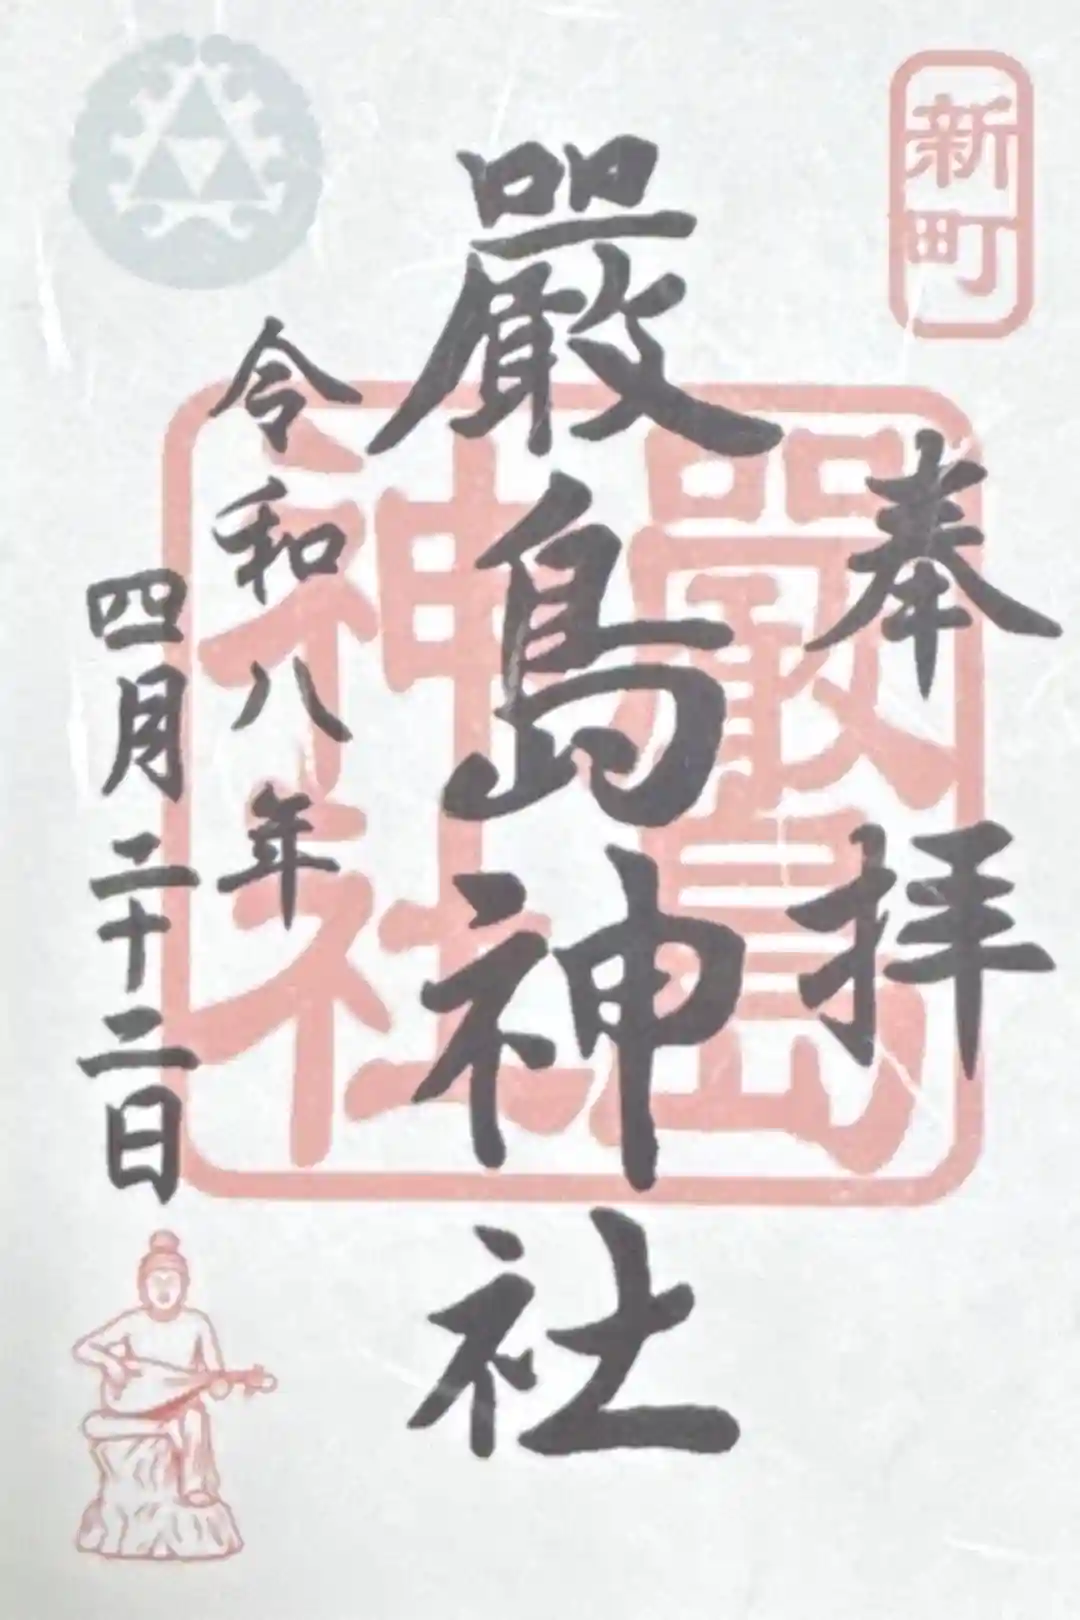 新町
奉拝
嚴島神社
嚴島
神社
令和八年
四月二十二日